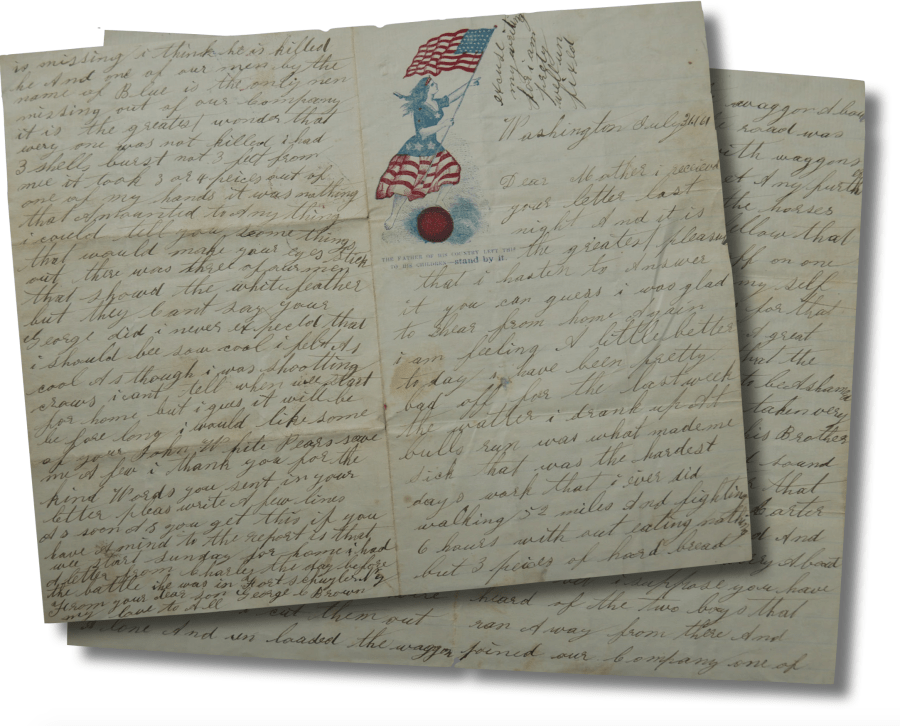 is missing i think he is killed
he And one of our men by the
name of Blue is the only men
missing out of our Company
it is the greatest wonder that
were one was not killed i had
3 shells burst not 3 feet from
mee it took 3 or 4 peices out of
one of my hands it was nothing
that Amounted to Any thing
i could tell you some things
that would make your eyes stick
out there was three of our men
that showd the white feather
but they Cant say your
George did i never expected that
i should bee saw cool i felt As
cool As though i was shootting
crows i cant tell when wee start
for home but i gues it will be
be fore long i would like some
of your John White Pears save
me A few i thank you for the
kind Words you sent in your
letter pleas write A few lines
As soon As you get this if you
have A mind to the report is that
wee start Sunday for home i had
A letter from Charley the day before
the battle he was in Fort Schuyler Ny
from your dear son George C Brown
my love to All
excuse
my writing
for i am
prety
well
Washington July
Dear Mother i recieved
your letter last
night And it is
the greatest pleasure
that i hasten to Answer
it you can guess i was glad
to hear from home Again
i am feeling A little better
to day i have been pretty
bad off for the last week
the watter i drank up At
bulls run was what made me
sick that was the hardest
days work that i ever did
walking 32 miles And fighting
6 hours with out eating nothing
but 3 pieces of hard bread
THE FATHER OF HIS COUNTRY LEFT THIS
TO HIS CHILDREN—stand by it.
waggon
road was
with waggons
Any
the horses
fellow that
off on one
my self
for that
A great
that the
to be Ashamed
taken very
his Brother
sound
that
Carter
And
A bout
i suppose you have
heard of the two boys that
ran A way from there And
joined our Company one of
cut them out
And un loaded the waggon